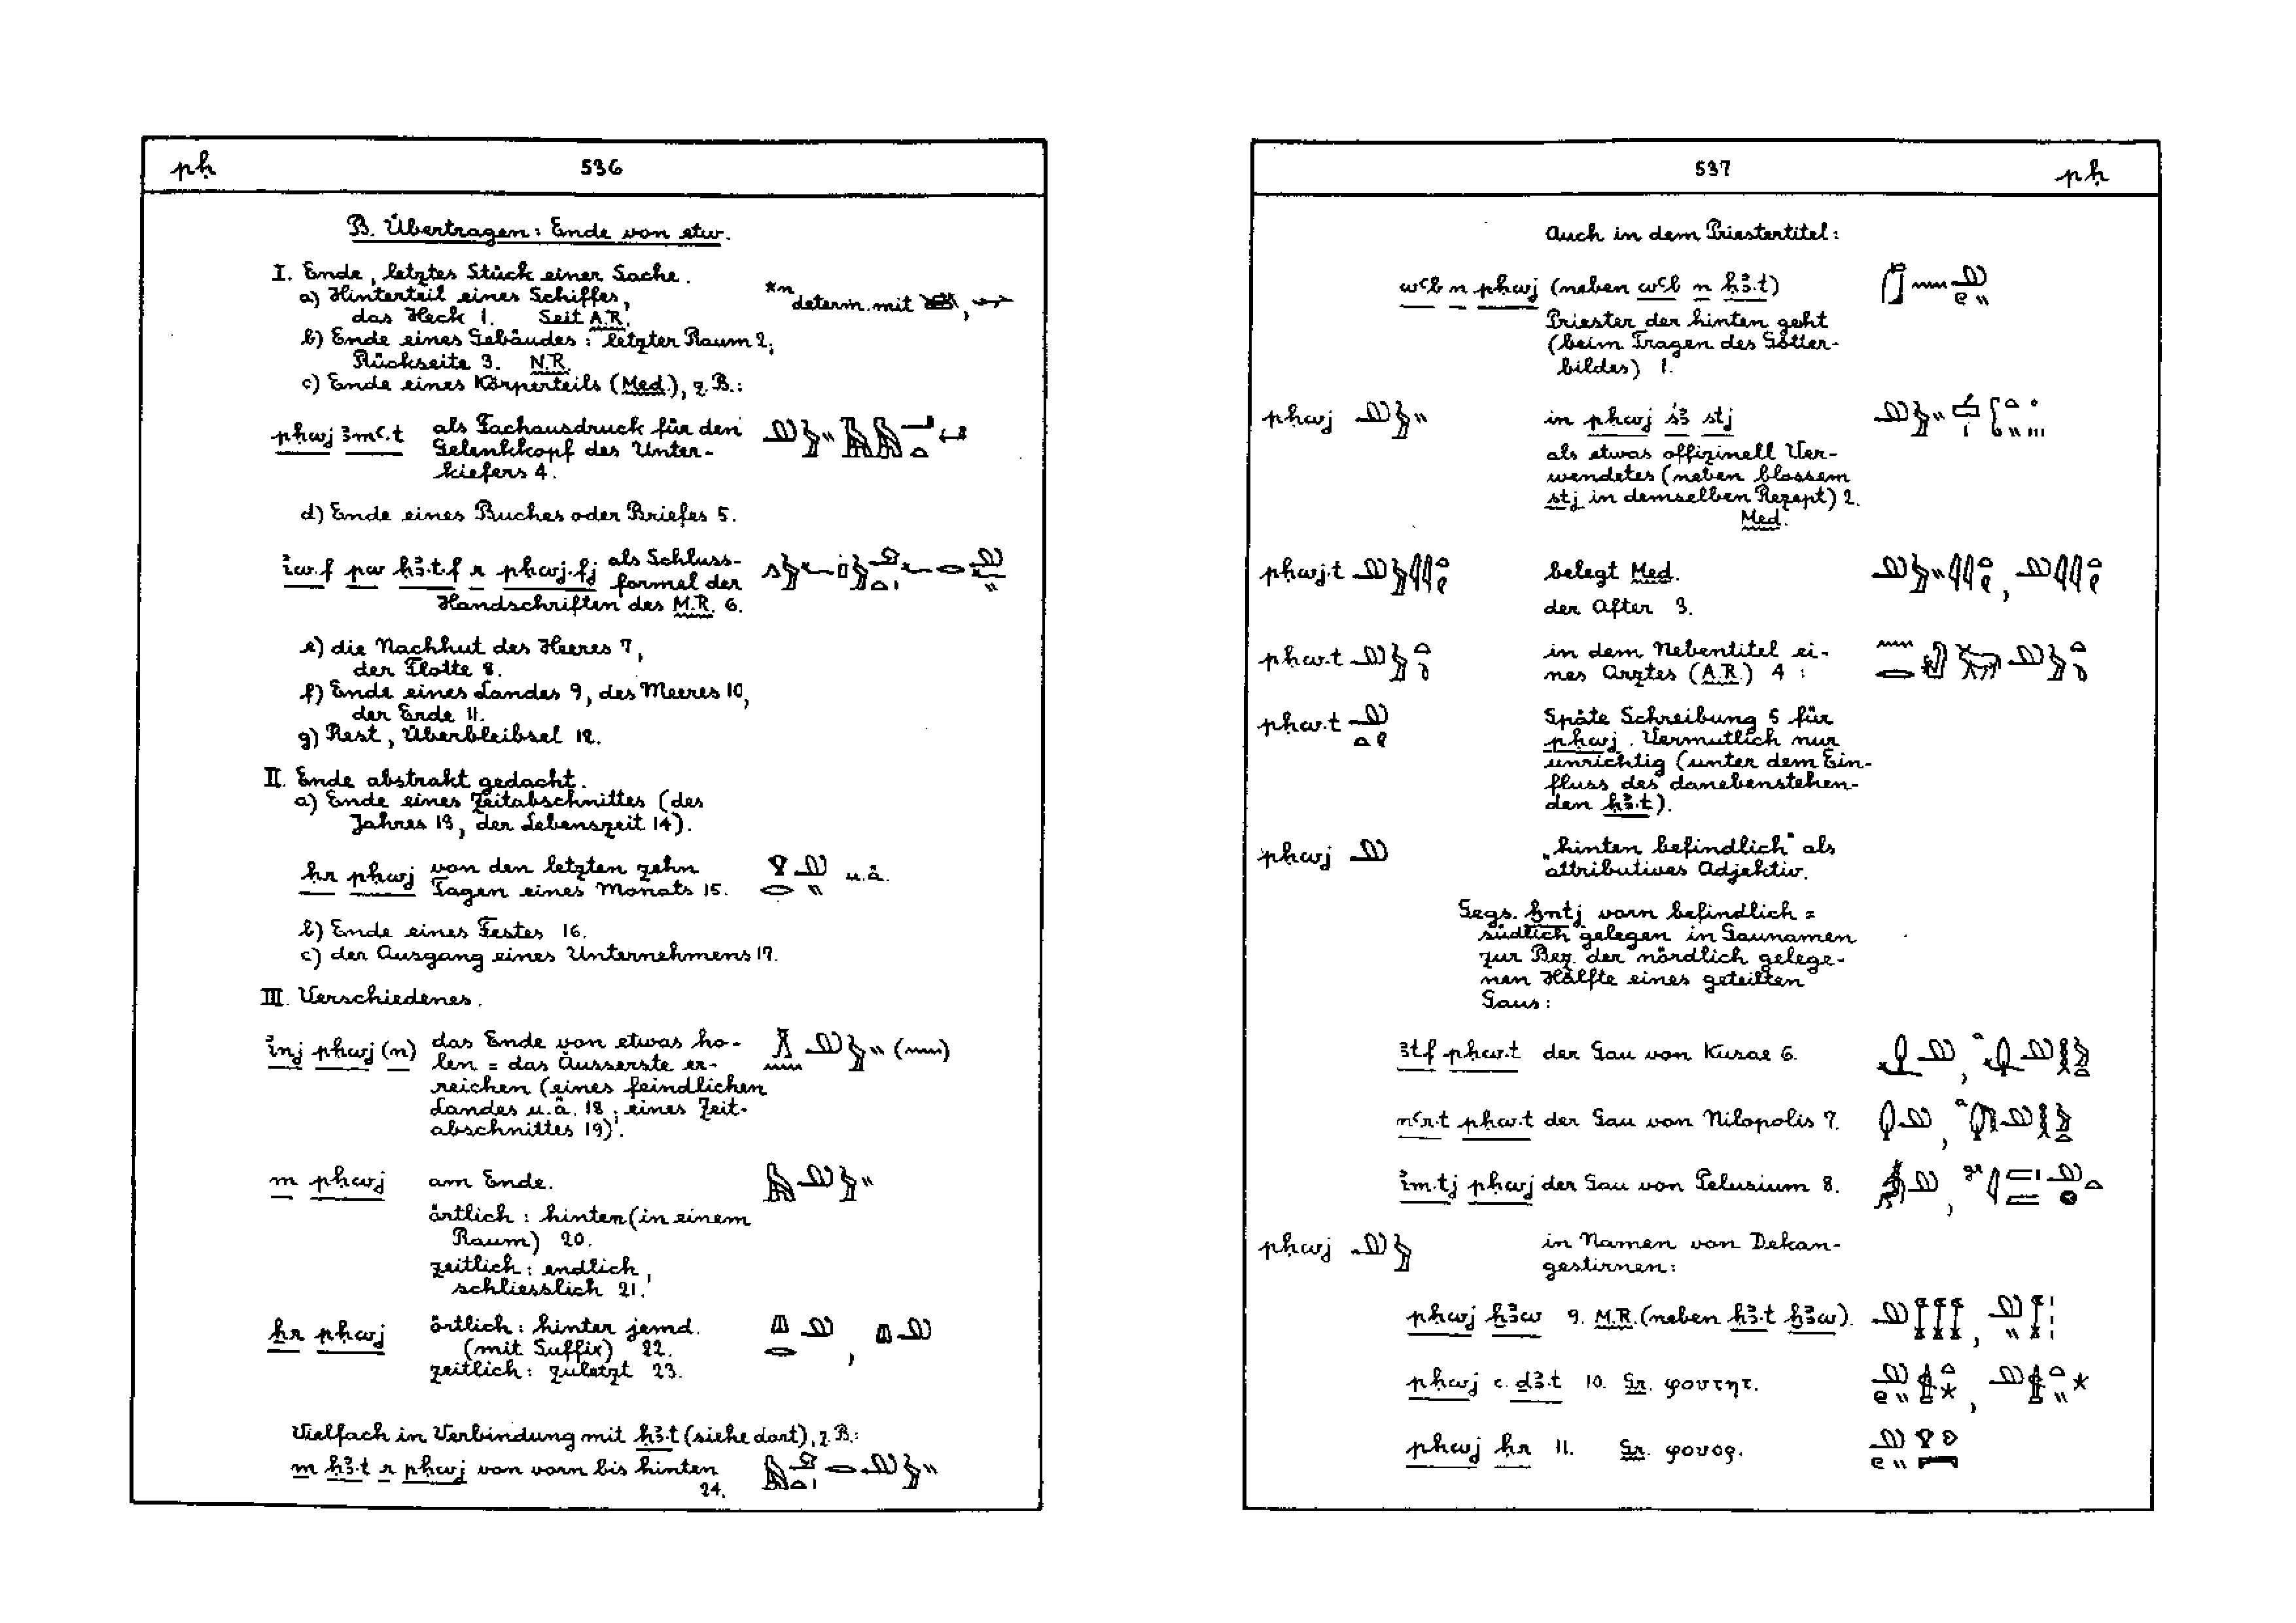 pḥ
536
B. Übertragen: Ende von etw.
I. Ende, letztes Stück einer Sache.
a) Hinterteil eines Schiffes,
das Heck 1. Seit A.R.
*n determ. mit
b) Ende eines Gebäudes: letzter Raum 2,
Rückseite 3. N.R.
c) Ende eines Körperteils (Med.), z.B.:
pḥwj ꜣmꜥ.t als Fachausdruck für den
Gelenkkopf des Unter-
kiefers 4.
d) Ende eines Buches oder Briefes 5.
iw.f pw ḥꜣ.t.f r pḥwj.fj als Schluss-
formel der
Handschriften des M.R. 6.
e) die Nachhut des Heeres 7,
der Flotte 8.
f) Ende eines Landes 9, des Meeres 10,
der Erde 11.
g) Rest, Überbleibsel 12.
II. Ende abstrakt gedacht.
a) Ende eines Zeitabschnittes (des
Jahres 13, der Lebenszeit 14).
ḥr pḥwj von den letzten zehn
Tagen eines Monats 15. u.ä.
b) Ende eines Festes 16.
c) der Ausgang eines Unternehmens 17.
III. Verschiedenes.
inj pḥwj (n) das Ende von etwas ho-
len = das Äusserste er-
reichen (eines feindlichen
Landes u.ä. 18; eines Zeit-
abschnittes 19).
m pḥwj am Ende.
örtlich: hinten (in einem
Raum) 20.
zeitlich: endlich,
schliesslich 21.
ẖr pḥwj örtlich: hinter jemd.
(mit Suffix) 22.
zeitlich: zuletzt 23.
Vielfach in Verbindung mit ḥꜣ.t (siehe dort), z.B.:
m ḥꜣ.t r pḥwj von vorn bis hinten
24.
537
pḥ
Auch in dem Priestertitel:
wꜥb n pḥwj (neben wꜥb n ḥꜣ.t)
Priester der hinten geht
(beim Tragen des Götter-
bildes) 1.
pḥwj in pḥwj šꜣ stj
als etwas offizinell Ver-
wendetes (neben blossem
stj in demselben Rezept) 2.
Med.
pḥwj.t belegt Med.
der After 3.
pḥw.t in dem Nebentitel ei-
nes Arztes (A.R.) 4:
pḥw.t Späte Schreibung 5 für
pḥwj. Vermutlich nur
unrichtig (unter dem Ein-
fluss des danebenstehen-
den ḥꜣ.t).
pḥwj „hinten befindlich" als
attributives Adjektiv.
Gegs. ḫntj vorn befindlich =
südlich gelegen in Gaunamen
zur Bez. der nördlich gelege-
nen Hälfte eines geteilten
Gaus:
ꜣtf pḥw.t der Gau von Kusae 6.
nꜥr.t pḥw.t der Gau von Nilopolis 7.
im.tj pḥwj der Gau von Pelusium 8.
pḥwj in Namen von Dekan-
gestirnen:
pḥwj ḫꜣw 9. M.R. (neben ḥꜣ.t ḫꜣw).
pḥwj c. ḏꜣ.t 10. Gr. φουτητ.
pḥwj ḥr 11. Gr. φουορ.